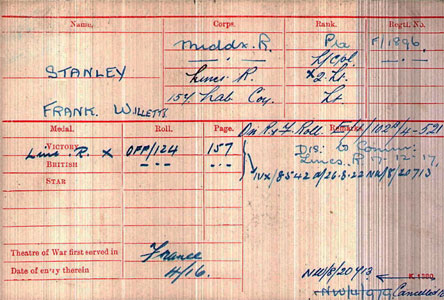 Name. Corps. Rank. Regtl. No.
Middx. R. Pte F/1896
— . — L/Cpl.
STANLEY Lincs R. x 2. Lt.
154 Lab Coy. Lt
FRANK. WILLETTS
Medal. Roll. Page. On R & F Roll Remarks. E/1/102B/4-521
VICTORY Linc. R. x OFF/124 157 Dis: to Commn:
BRITISH — . — — . — Lincs. R 17-12-17.
STAR IVX/8542 26-8-22 NW/8/20713
Theatre of War first served in France
Date of entry therein 4/16.
NW/8/20713 K. 1380.
Cancelled